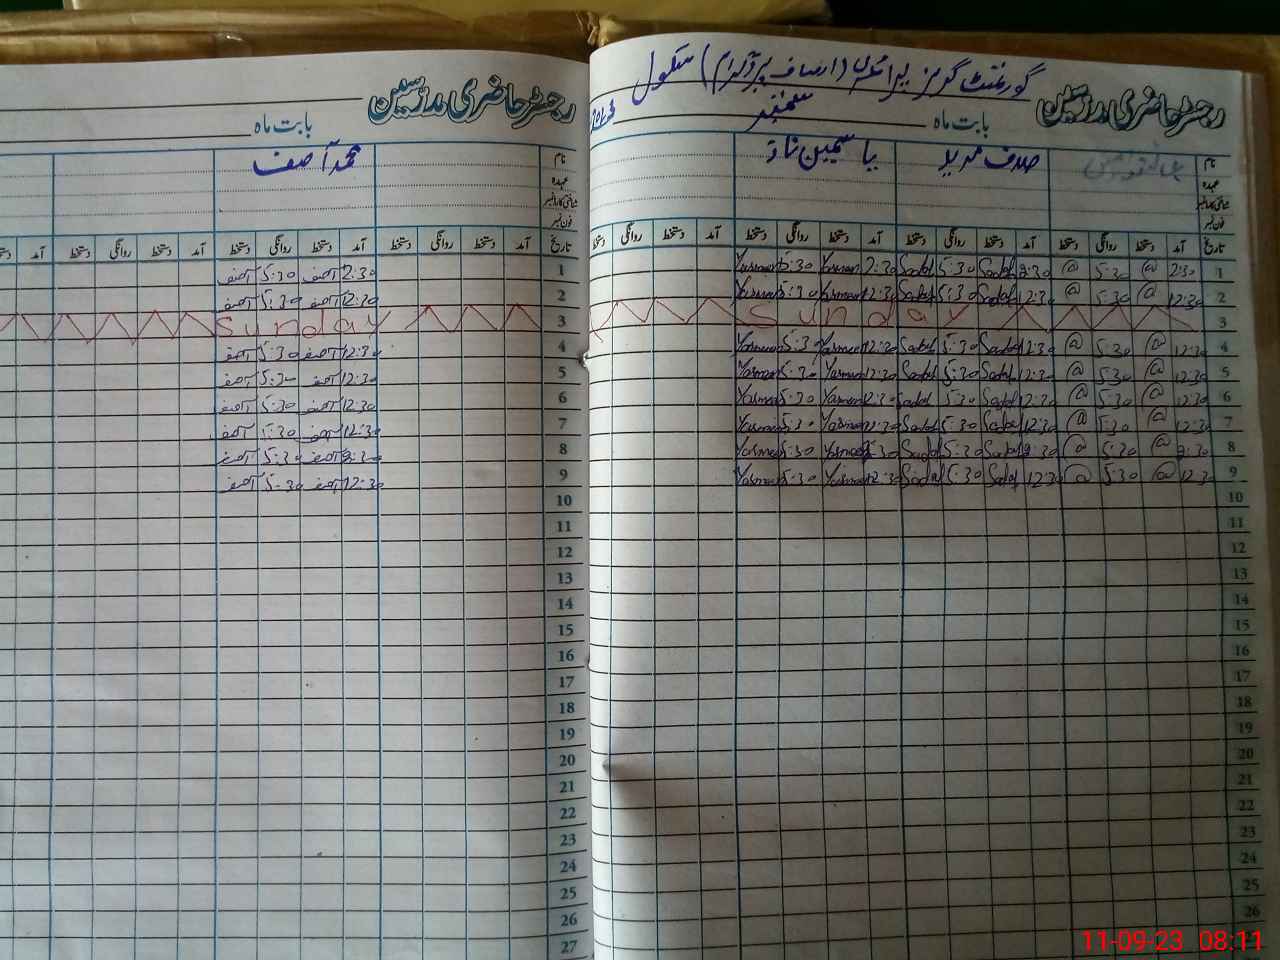 گورنمنٹ گرلز پرائمری (انصاف پروگرام) سکول
رجسٹر حاضری مدرسین بابت ماہ ستمبر
نام صدف یاسمین ناز
عہدہ
شناختی کارڈ نمبر
فون نمبر
تاریخ آمد دستخط روانگی دستخط آمد دستخط روانگی دستخط آمد دستخط روانگی دستخط آمد دستخط روانگی دستخط
1 2:30 @ 5:30 @ 2:30 Sadaf 5:30 Sadaf 2:30 Yasmeen 5:30 Yasmeen
2 12:30 @ 5:30 @ 12:30 Sadaf 5:30 Sadaf 12:30 Yasmeen 5:30 Yasmeen
3 Sunday
4 12:30 @ 5:30 @ 12:30 Sadaf 5:30 Sadaf 12:30 Yasmeen 5:30 Yasmeen
5 12:30 @ 5:30 @ 12:30 Sadaf 5:30 Sadaf 12:30 Yasmeen 5:30 Yasmeen
6 12:30 @ 5:30 @ 12:30 Sadaf 5:30 Sadaf 12:30 Yasmeen 5:30 Yasmeen
7 12:30 @ 5:30 @ 12:30 Sadaf 5:30 Sadaf Yasmeen 5:30 Yasmeen
8 2:30 @ 5:30 @ 2:30 Sadaf 5:30 Sadaf 2:30 Yasmeen 5:30 Yasmeen
9 12:30 @ 5:30 @ 12:30 Sadaf 5:30 Sadaf 12:30 Yasmeen 5:30 Yasmeen
10
11
12
13
14
15
16
17
18
19
20
21
22
23
24
25
26
رجسٹر حاضری مدرسین
بابت ماہ
نام محمد آصف
عہدہ
شناختی کارڈ نمبر
فون نمبر
تاریخ آمد دستخط روانگی دستخط آمد دستخط روانگی دستخط آمد دستخط روانگی دستخط آمد
1 2:30 آصف 5:30 آصف
2 12:30 آصف 5:30 آصف
3 Sunday
4 12:30 آصف 5:30 آصف
5 12:30 آصف 5:30 آصف
6 12:30 آصف 5:30 آصف
7 12:30 آصف 5:30 آصف
8 2:30 آصف 5:30 آصف
9 12:30 آصف 5:30 آصف
10
11
12
13
14
15
16
17
18
19
20
21
22
23
24
25
26
27
11-09-23 08:11